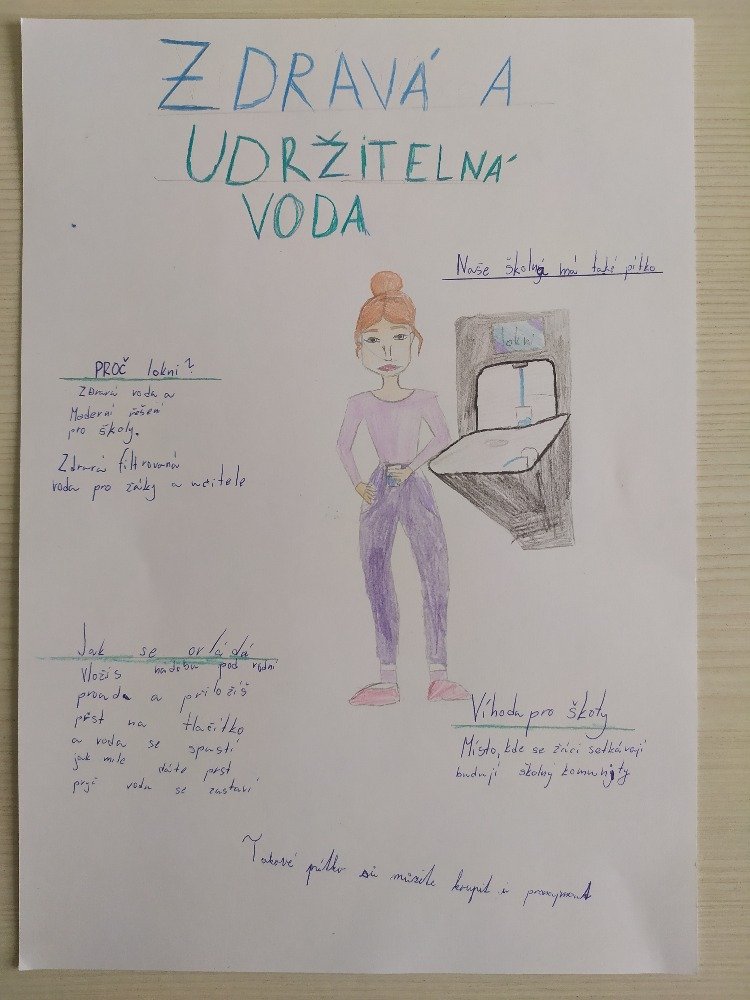 ZDRAVÁ A
UDRŽITELNÁ
VODA
Naše školná má také pítko
lokni
PROČ lokni?
Zdravá voda a
Moderní řešení
pro školy.
Zdravá filtrovaná
voda pro žáky a učitele
Jak se ovládá
Vložíš nádobu pod vodní
proud a přiložíš
přst na tlačítko
a voda se spustí
jak mile dáte prst
pryč voda se zastaví
Víhoda pro školy
Místo, kde se žáci setkávají
budují školný komunity
Takové pítko si můžete koupit i